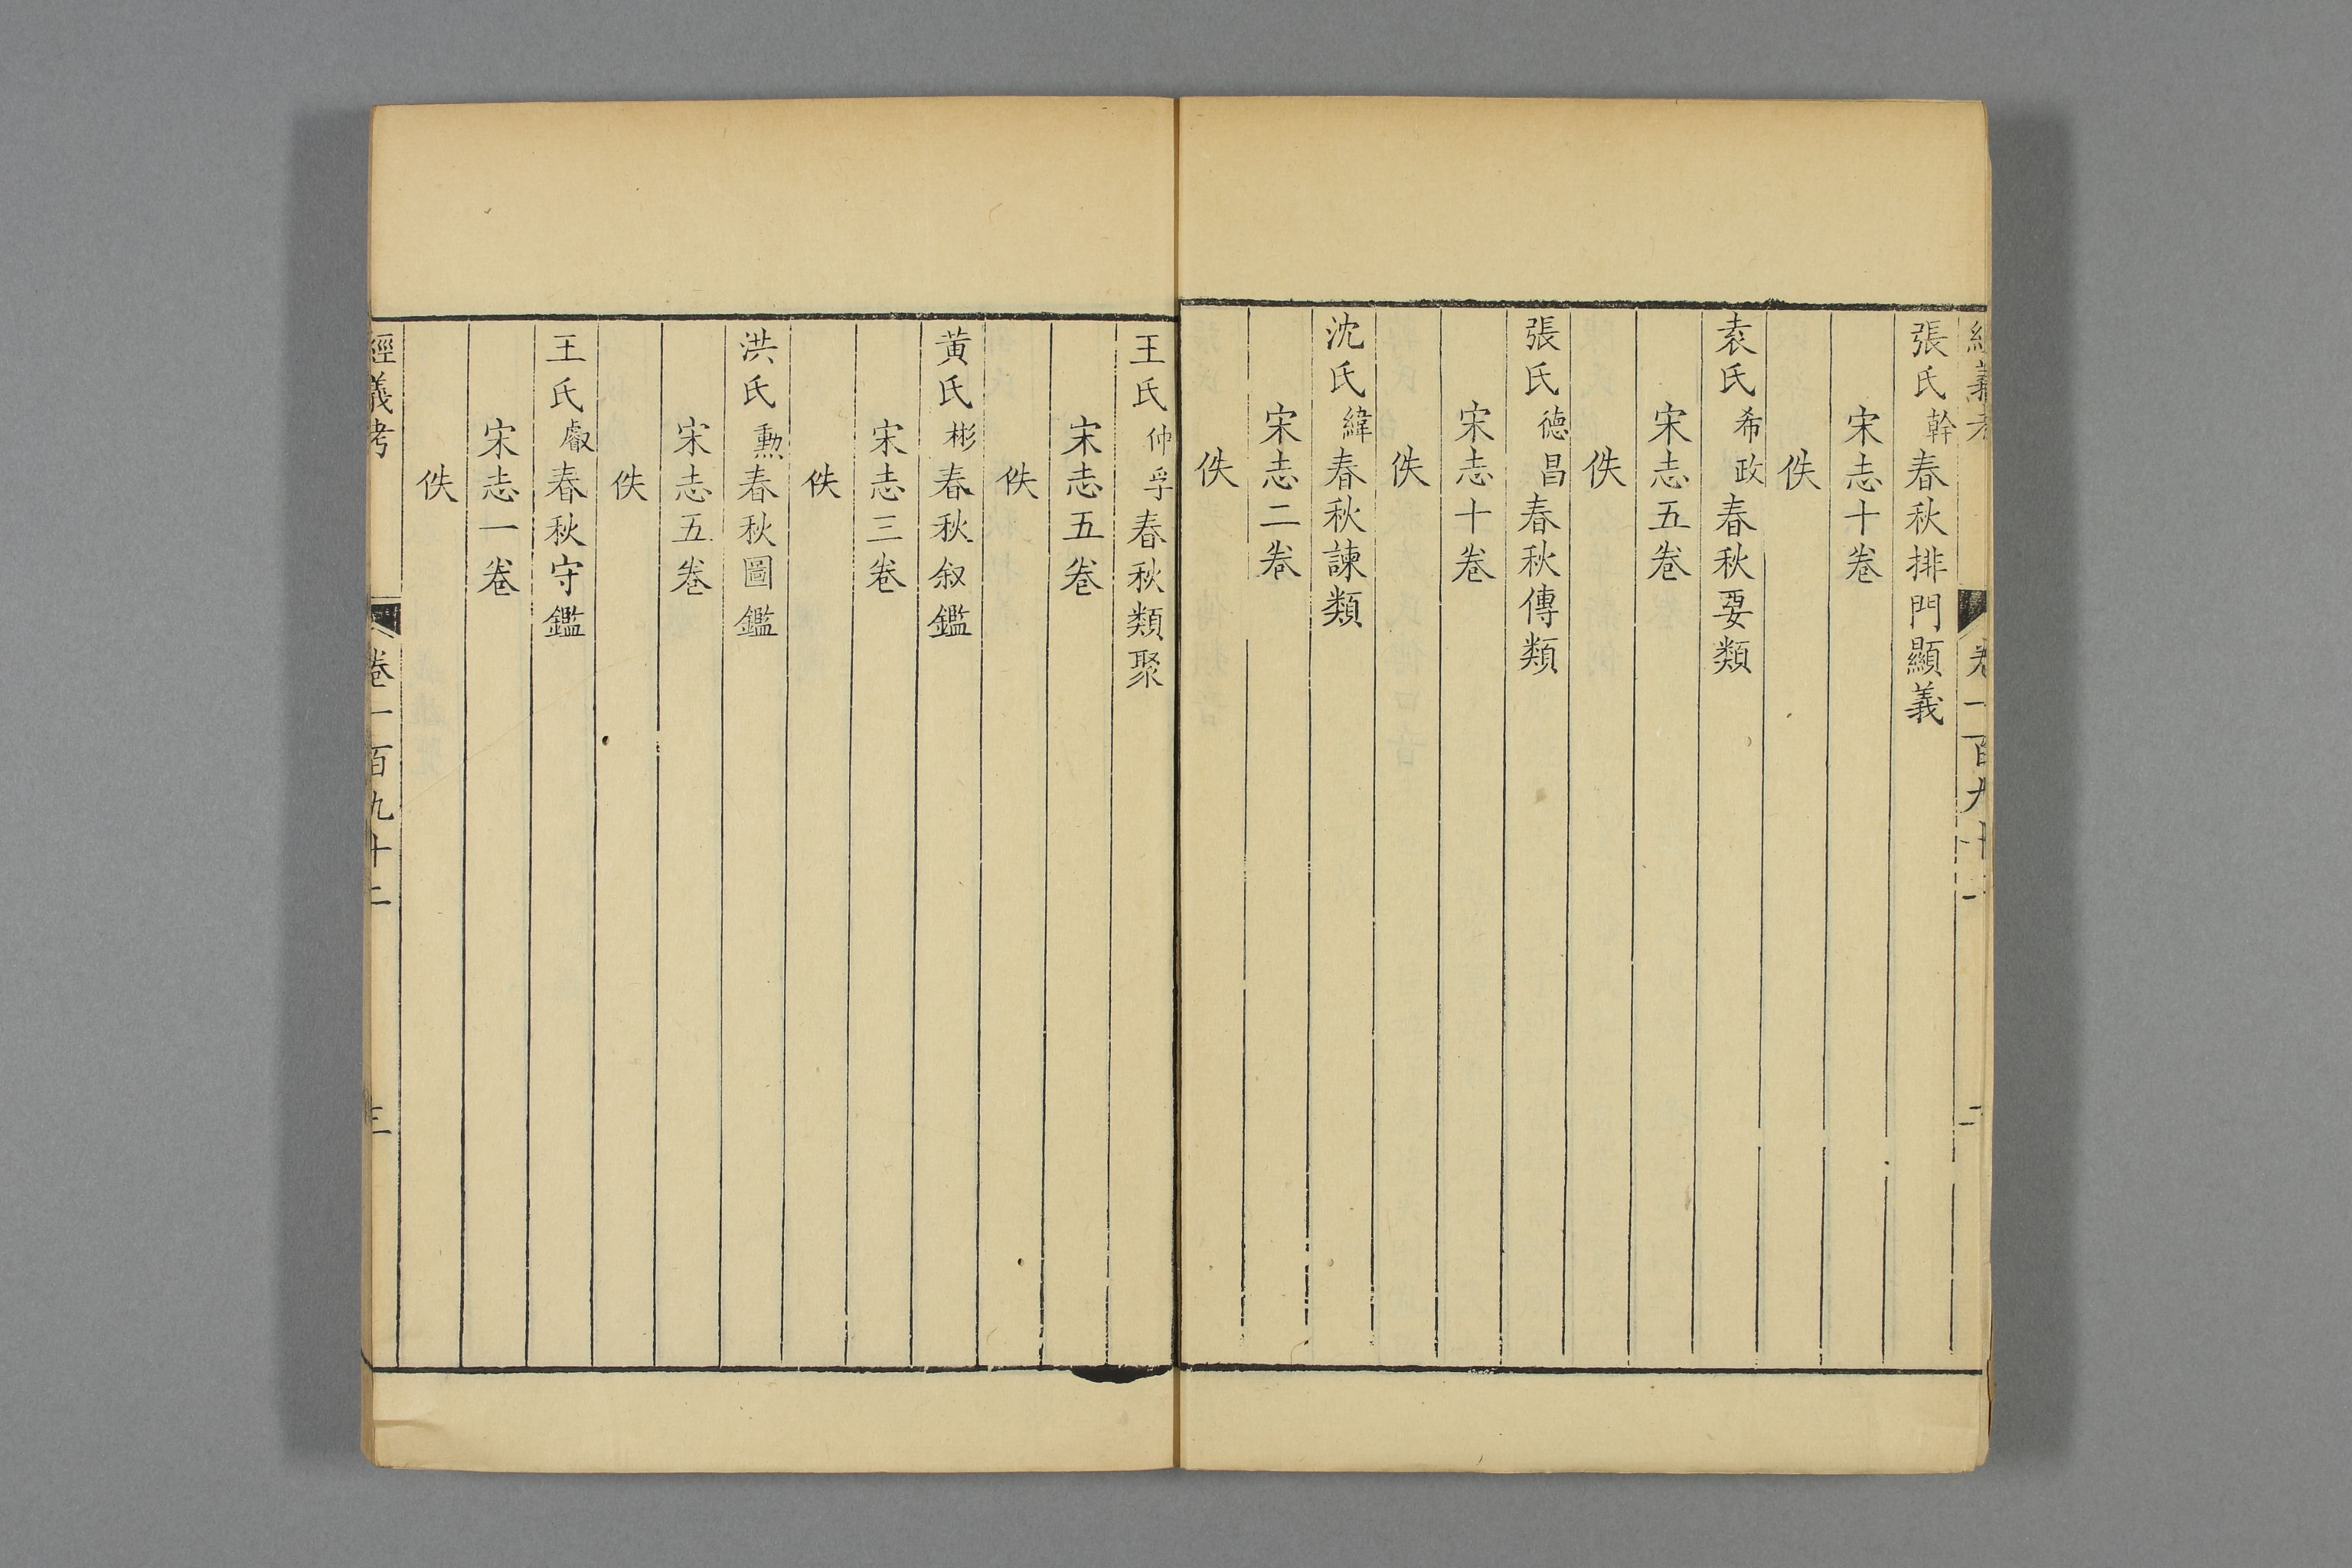 經義考 卷一百九十二 二
張氏幹春秋排門顯義
宋志十卷
佚
袁氏希政春秋要類
宋志五卷
佚
張氏德昌春秋傳類
宋志十卷
佚
沈氏緯春秋諫類
宋志二卷
佚
王氏仲孚春秋類聚
宋志五卷
佚
黃氏彬春秋叙鑑
宋志三卷
佚
洪氏勲春秋圖鑑
宋志五卷
佚
王氏叡春秋守鑑
宋志一卷
佚
經義考 卷一百九十二 三